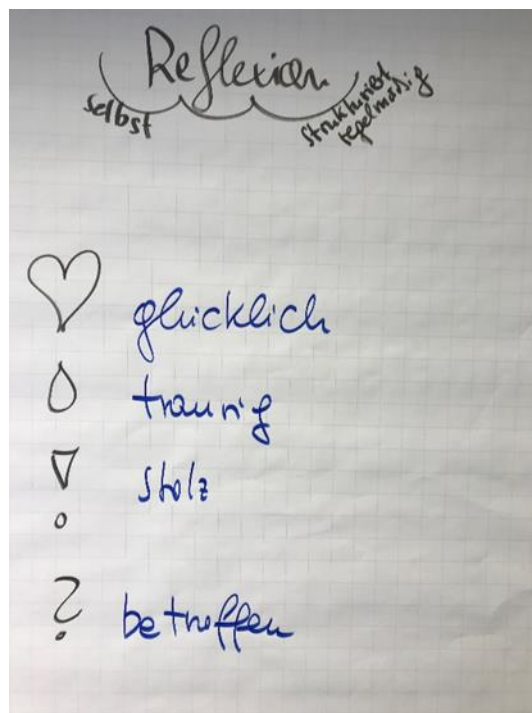 Reflexion
selbst
strukturiert
regelmäßig
glücklich
traurig
stolz
?
betroffen